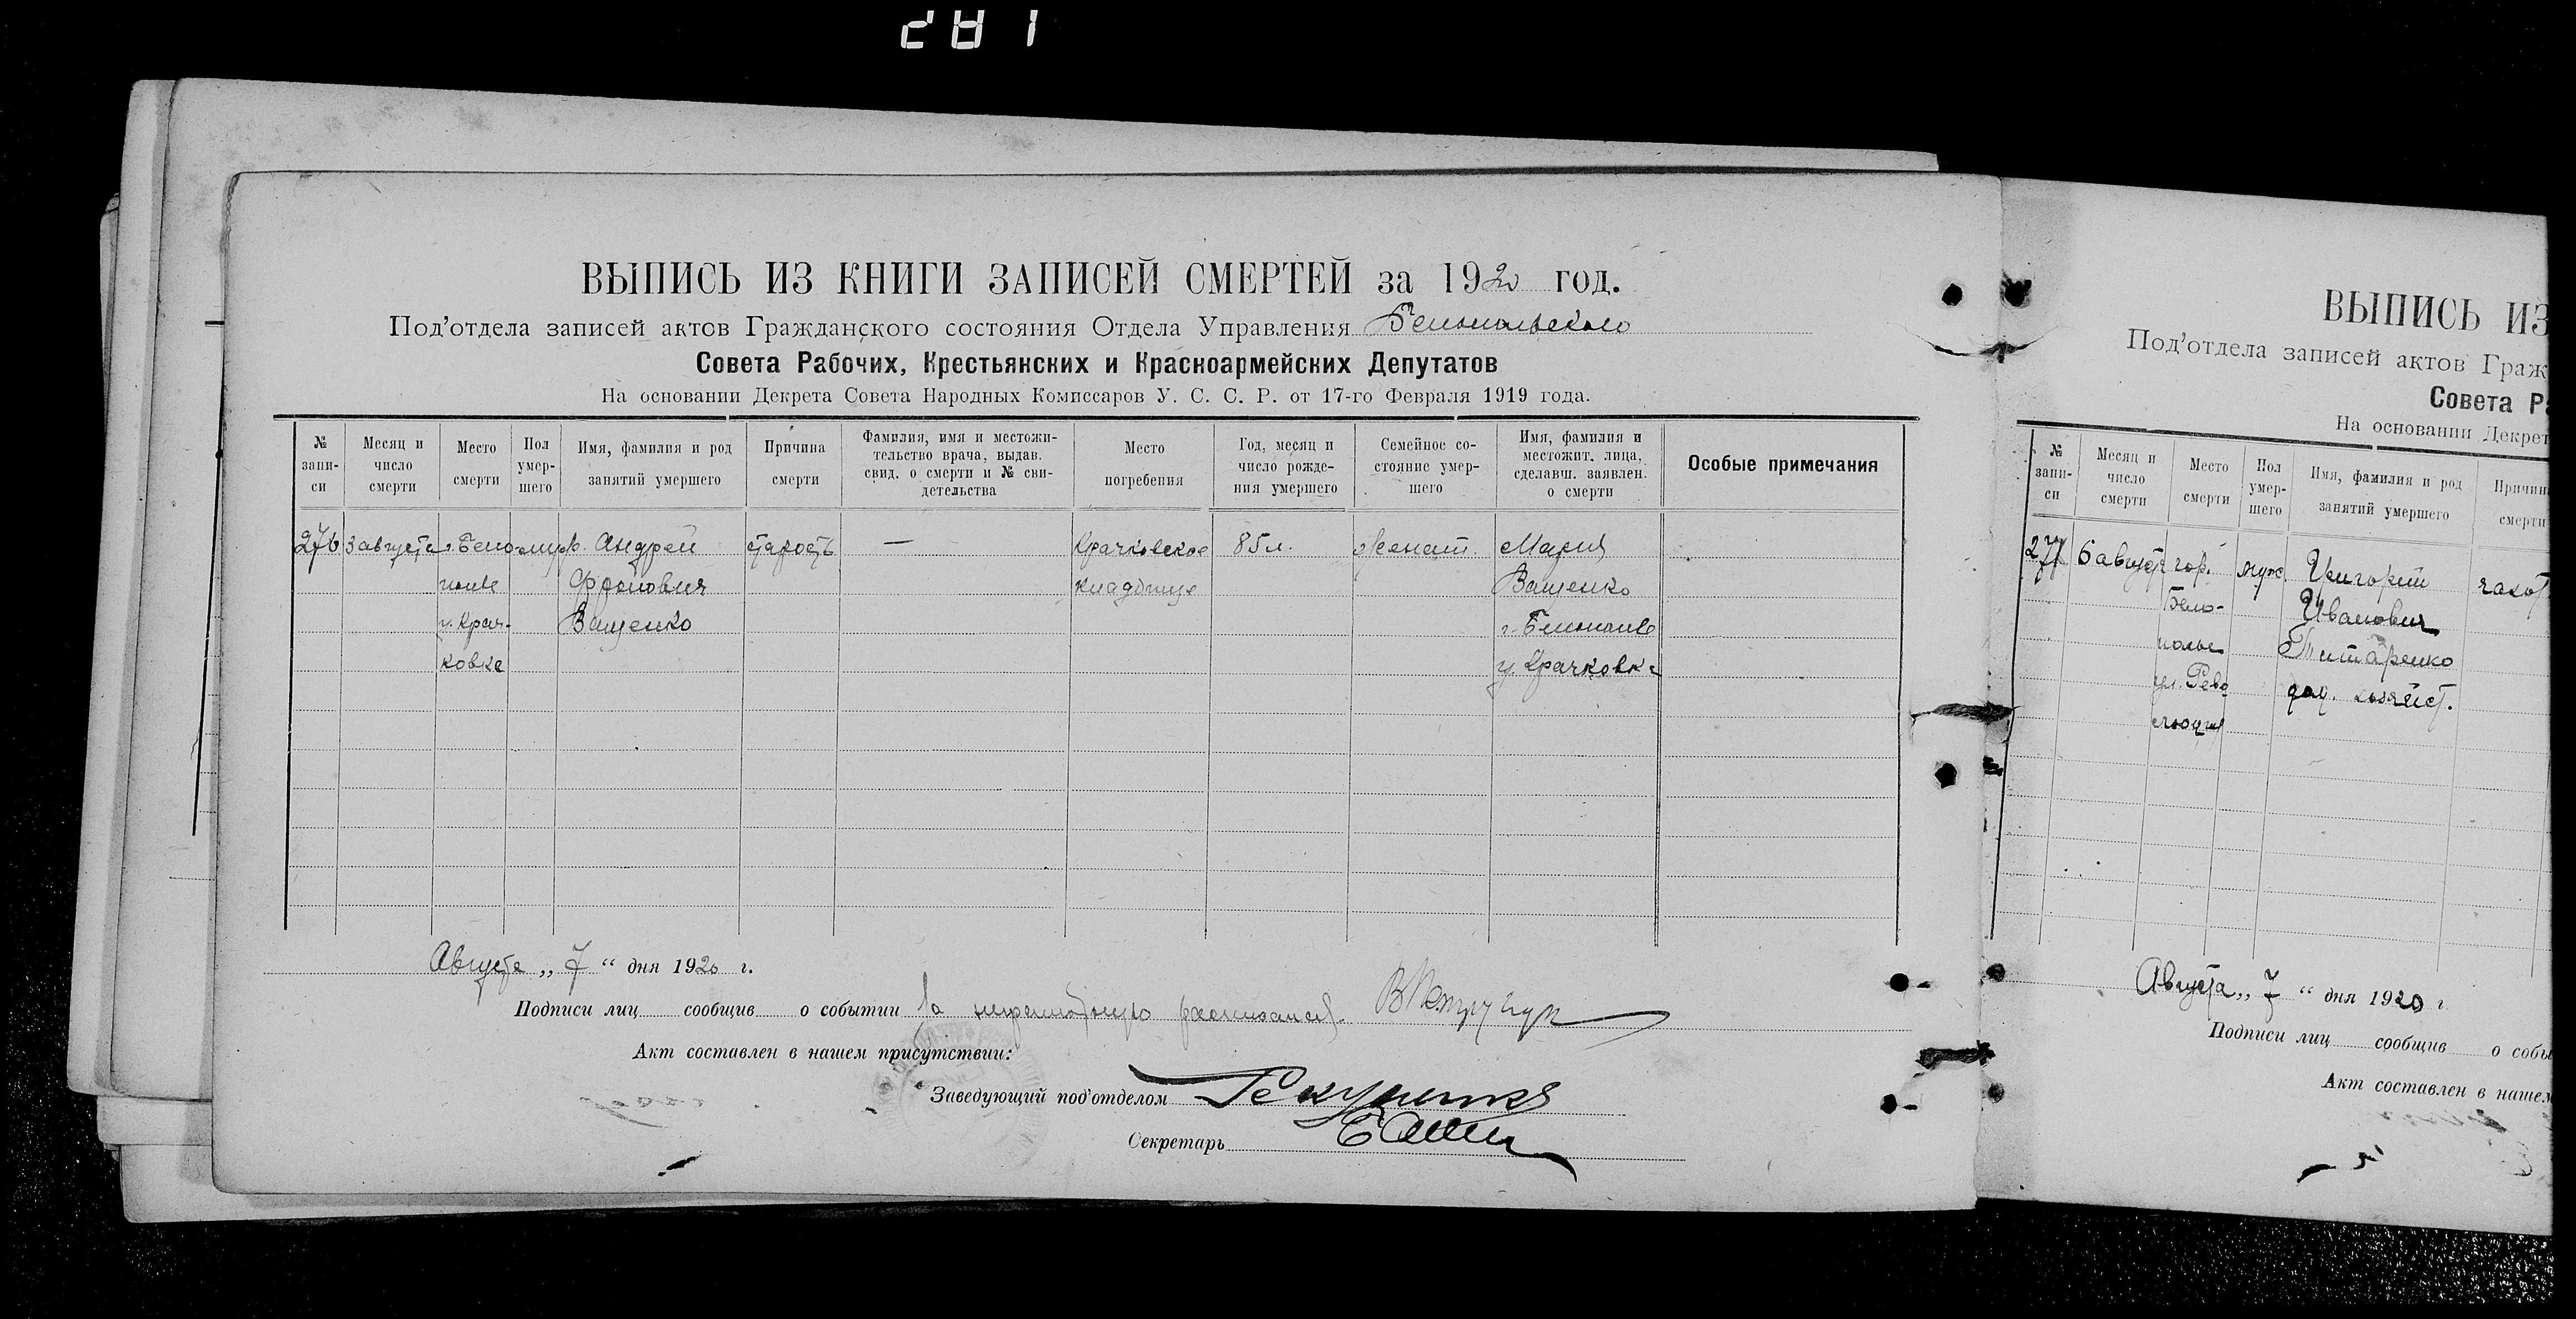 281
ВЫПИСЬ ИЗ КНИГИ ЗАПИСЕЙ СМЕРТЕЙ за 1920 год.
Под'отдела записей актов Гражданского состояния Отдела Управления Белопольского
Совета Рабочих, Крестьянских и Красноармейских Депутатов
На основании Декрета Совета Народных Комиссаров У. С. С. Р. от 17-го Февраля 1919 года.
№ запи-си
Месяц и число смерти
Место смерти
Пол умер-шего
Имя, фамилия и род занятий умершего
Причина смерти
Фамилия, имя и местожи-тельство врача, выдав. свид. о смерти и № сви-детельства
Место погребения
Год, месяц и число рожде-ния умершего
Семейное со-стояние умер-шего
Имя, фамилия и местожит. лица, сделавш. заявлен. о смерти
Особые примечания
276 3 августа г. Бело- муж. Андрей старость — Крачковское 85 л. женат. Мария
полье кладбище Ващенко
у. Крач- Ващенко г. Белополье
ковка у. Крачковка
Августа „ 7 “ дня 1920 г.
Подписи лиц сообщив о событии За неграмотную расписался
Акт составлен в нашем присутствии:
Заведующий под'отделом
Секретарь
ВЫПИСЬ ИЗ
Под'отдела записей актов Граж
Совета Р
На основании Декрет
№ запи-си
Месяц и число смерти
Место смерти
Пол умер-шего
Имя, фамилия и род занятий умершего
Причин смерти
277 6 август гор. муж. Григорий чахот
Бело- Иванович
полье Титаренко
ул. Рево дом. хозяйст.
люции
Августа „ 7 “ дня 1920 г.
Подписи лиц сообщив о собы
Акт составлен в нашем